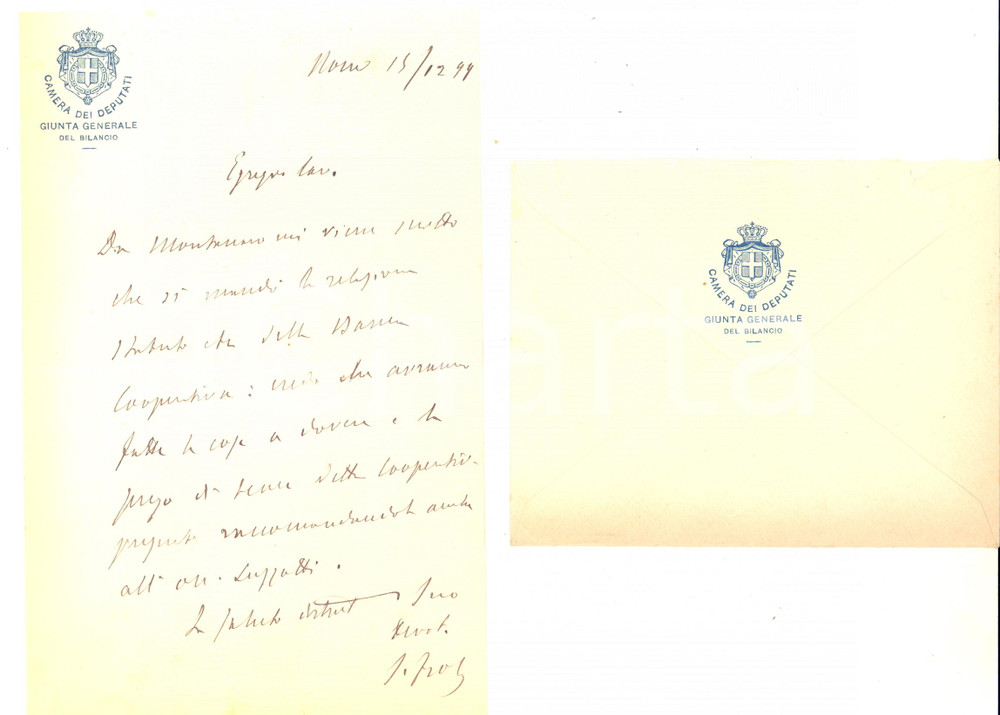 CAMERA DEI DEPUTATI
GIUNTA GENERALE
DEL BILANCIO
Roma 15/12 99
Egregio Cav.
Da mi viene
che si mandò la relazione
che della Banca
Cooperativa: credo che avranno
fatte le cose a dovere e la
prego di tener detta Cooperativa
presente raccomandandola anche
all' on. Luzzatti.
La saluto Suo
Devot.
CAMERA DEI DEPUTATI
GIUNTA GENERALE
DEL BILANCIO